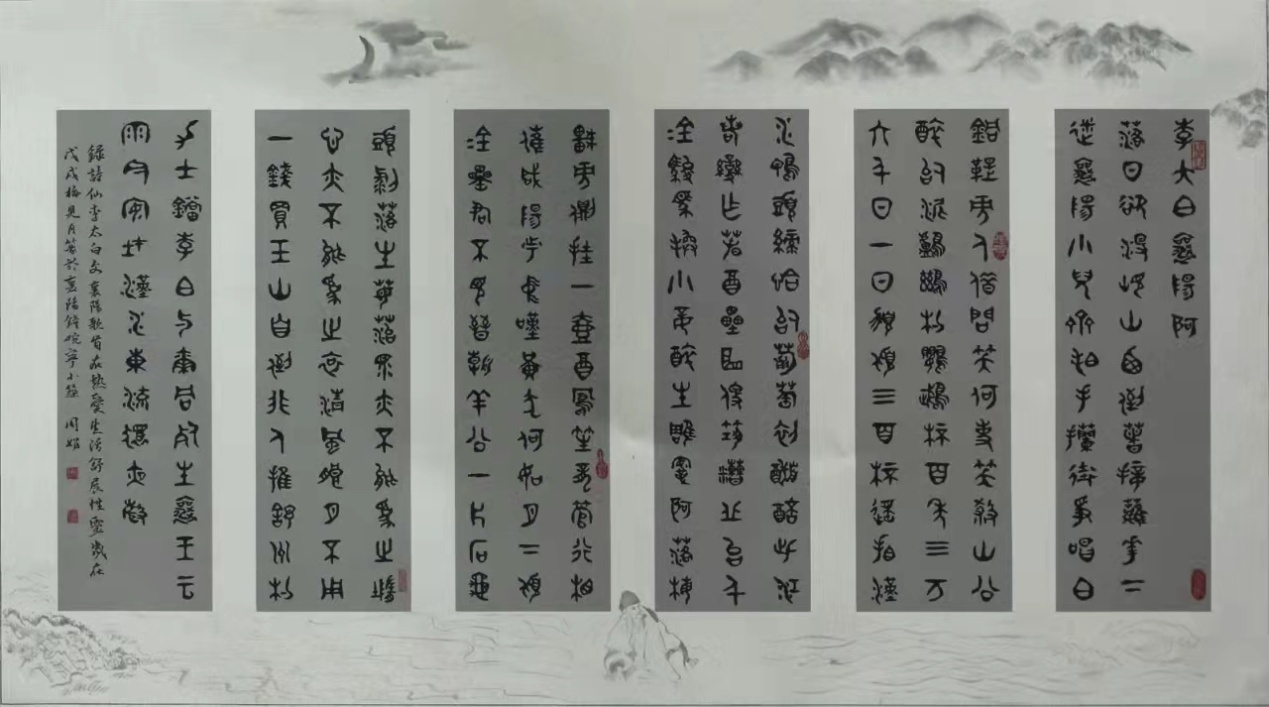 李太白襄陽歌
落日欲没峴山西倒著接蘺花下
迷襄陽小兒齊拍手攔街爭唱白
銅鞮旁人借問笑何事笑殺山公
醉似泥鸕鶿杓鸚鵡杯百年三萬
六千日一日須傾三百杯遙看漢
水鴨頭綠恰似葡萄初醱醅此江
若變作春酒壘麴便築糟丘臺千
金駿馬換小妾醉坐雕鞍歌落梅
車旁側挂一壺酒鳳笙龍管行相
催咸陽市中嘆黃犬何如月下傾
金罍君不見晉朝羊公一片石龜
頭剝落生莓苔淚亦不能為之墮
心亦不能為之哀清風朗月不用
一錢買玉山自倒非人推舒州杓
力士鐺李白與爾同死生襄王雲
雨今安在江水東流猿夜聲
錄詩仙李太白文襄陽歌旨在熱愛生活舒展性靈歲在
戊戌梅見月於襄陽